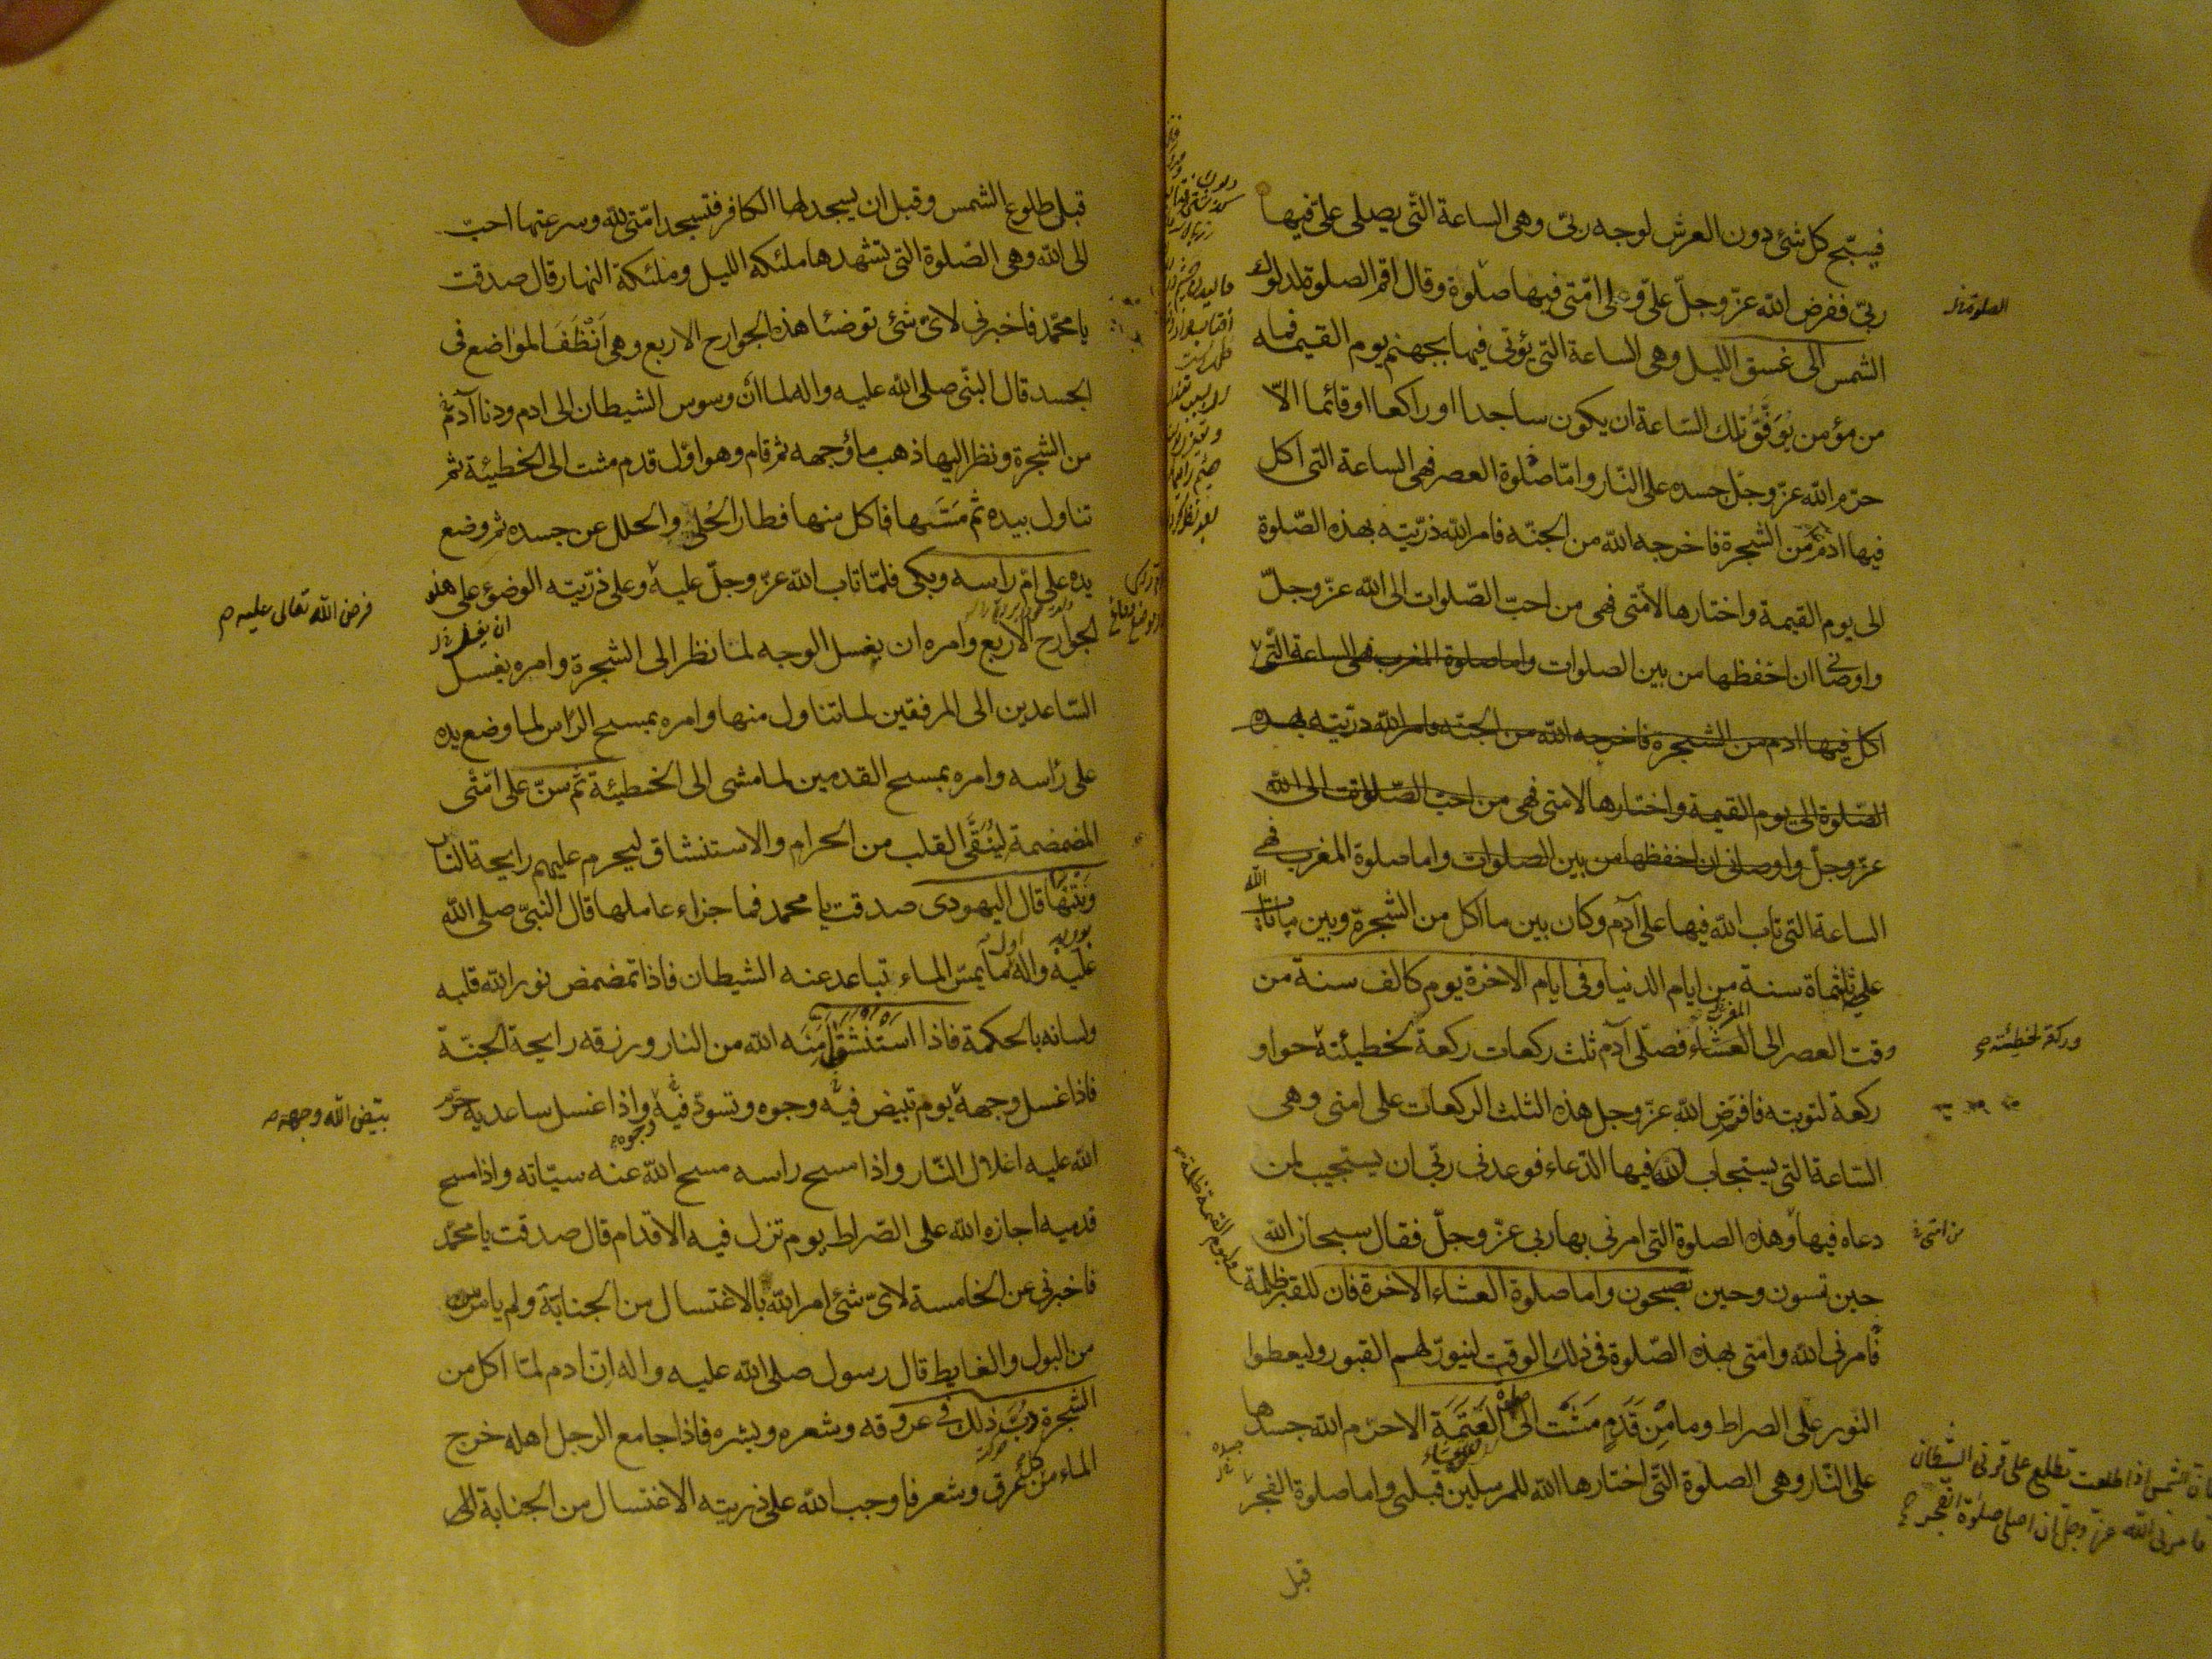 فيسبّح كل شئ دون العرش لوجه ربى وهى الساعة التى يصلى علىّ فيها
ربّى ففرض الله عزّ وجلّ علىّ وعلى امّتى فيها صلوة وقال اقم الصلوة لدلوك
الصلوة
الشمس الى غسق الليل وهى الساعة التى يؤتى فيها بجهنم يوم القيمة فما
من مؤمن يوفّق تلك السّاعة ان يكون ساجدا او راكعا او قائما الّا
حرّم الله عزّ وجلّ جسده على النّار وامّا صلوة العصر فهى الساعة التى اكل
فيها ادم من الشجرة فاخرجه الله من الجنّه فامر الله ذرّيته بهذه الصّلوة
الى يوم القيمة واختارها لامّتى فهى من احبّ الصّلوات الى الله عزّ وجلّ
واوصانى ان احفظها من بين الصلوات واما صلوة المغرب فهى الساعة التّى
اكل فيها ادم من الشجرة فاخرجه الله من الجنّه فامر الله ذرّيته بهذه
الصّلوة الى يوم القيمة واختارها لامتى فهى من احبّ الصّلوات الى الله
عزّ وجلّ واوصانى ان احفظها من بين الصلوات واما صلوة المغرب فهى
الساعة التى تاب الله فيها على آدم وكان بين ما اكل من الشجرة وبين ما تاب
الله
عليه ثلثماة سنة من ايام الدنيا وفى ايام الاخرة يوم كالف سنة من
وقت العصر الى العشاء فصلّى آدم ثلث ركعات ركعة لخطيئته حوا و
وركعة لخطيئة
ركعة لتوبته فافرض الله عزّ وجل هذه الثلث الركعات على امتى وهى
السّاعة التى يستجاب لله فيها الدّعاء فوعدنى ربّى ان يستجيب لمن
دعاه فيها وهذه الصلوة التى امرنى بها ربى عزّ وجلّ فقال سبحان الله
من امتى
حين تمسون وحين تصبحون واما صلوة العشاء الاخرة فان للقبر ظلمة
وليوم القيمة ظلمة
فامرنى الله وامتى بهذه الصّلوة فى ذلك الوقت لينوّر لهم القبور وليعطوا
النور على الصراط وما من قدم مشت الى العتمة الا حرّم الله جسدها
صلوة
جسده
على النّار وهى الصلوة التّى اختارها الله للمرسلين قبلى واما صلوة الفجر
فان الشمس اذا طلعت تطلع على قرنى الشيطان
فامرنى الله عزّ وجلّ ان اصلى صلوة الفجر
قبل
قبل طلوع الشمس وقبل ان يسجد لها الكافر فتسجد امّتى لله وسرعتها احبّ
الى الله وهى الصّلوة التى تشهدها ملئكة الليل وملئكة النهار قال صدقت
يا محمّد فاخبرنى لاىّ شئ توضئا هذه الجوارح الاربع وهى انظف المواضع فى
الجسد قال النبّى صلى الله عليه واله لما ان وسوس الشيطان الى ادم ودنا آدم
من الشجرة ونظر اليها ذهب ماؤجهه ثم قام وهو اوّل قدم مشت الى الخطيئة ثم
تناول بيده ثم مسّها فاكل منها فطار الحلى والحلل عن جسده ثم وضع
يده على امّ راسه وبكى فلمّا تاب الله عزّ وجلّ عليه وعلى ذرّيته الوضؤ على هذه
فرض الله تعالى عليه
الجوارح الاربع وامره ان يغسل الوجه لما نظر الى الشجرة وامره بغسل
ان يغسل
السّاعدين الى المرفقين لما تناول منها وامره بمسح الرّاس لما وضع يده
على رأسه وامره بمسح القدمين لما مشى الى الخطيئة ثم سنّ على امّتى
المضمضة لينقّى القلب من الحرام والاستنشاق ليحرم عليهم رايحة النّار
ونتنها قال اليهودى صدقت يا محمد فما جزاء عاملها قال النبىّ صلى الله
عليه واله اول ما يمسّ الماء تباعد عنه الشيطان فاذا تمضمض نور الله قلبه
ولسانه بالحكمة فاذا استنشق امنه الله من النار ورزقه رايحة الجنّة
فاذا غسل وجهه يوم تبيض فيه وجوه وتسودّ فيه واذا غسل ساعديه حرم
وجوه
بيّض الله وجهه
الله عليه اغلال النّار واذا مسح راسه مسح الله عنه سيّاته واذا مسح
قدميه اجازه الله على الصّراط يوم تزل فيه الاقدام قال صدقت يا محمّد
فاخبرنى عن الخامسة لاىّ شئ امر الله بالاغتسال من الجنابة ولم يامر
من البول والغايط قال رسول صلى الله عليه واله انّ ادم لمّا اكل من
الشجرة دبّ ذلك فى عروقه وشعره وبشره فاذا جامع الرجل اهله خرج
الماء من كل عرق وشعر فاوجب الله على ذريته الاغتسال من الجنابة الى